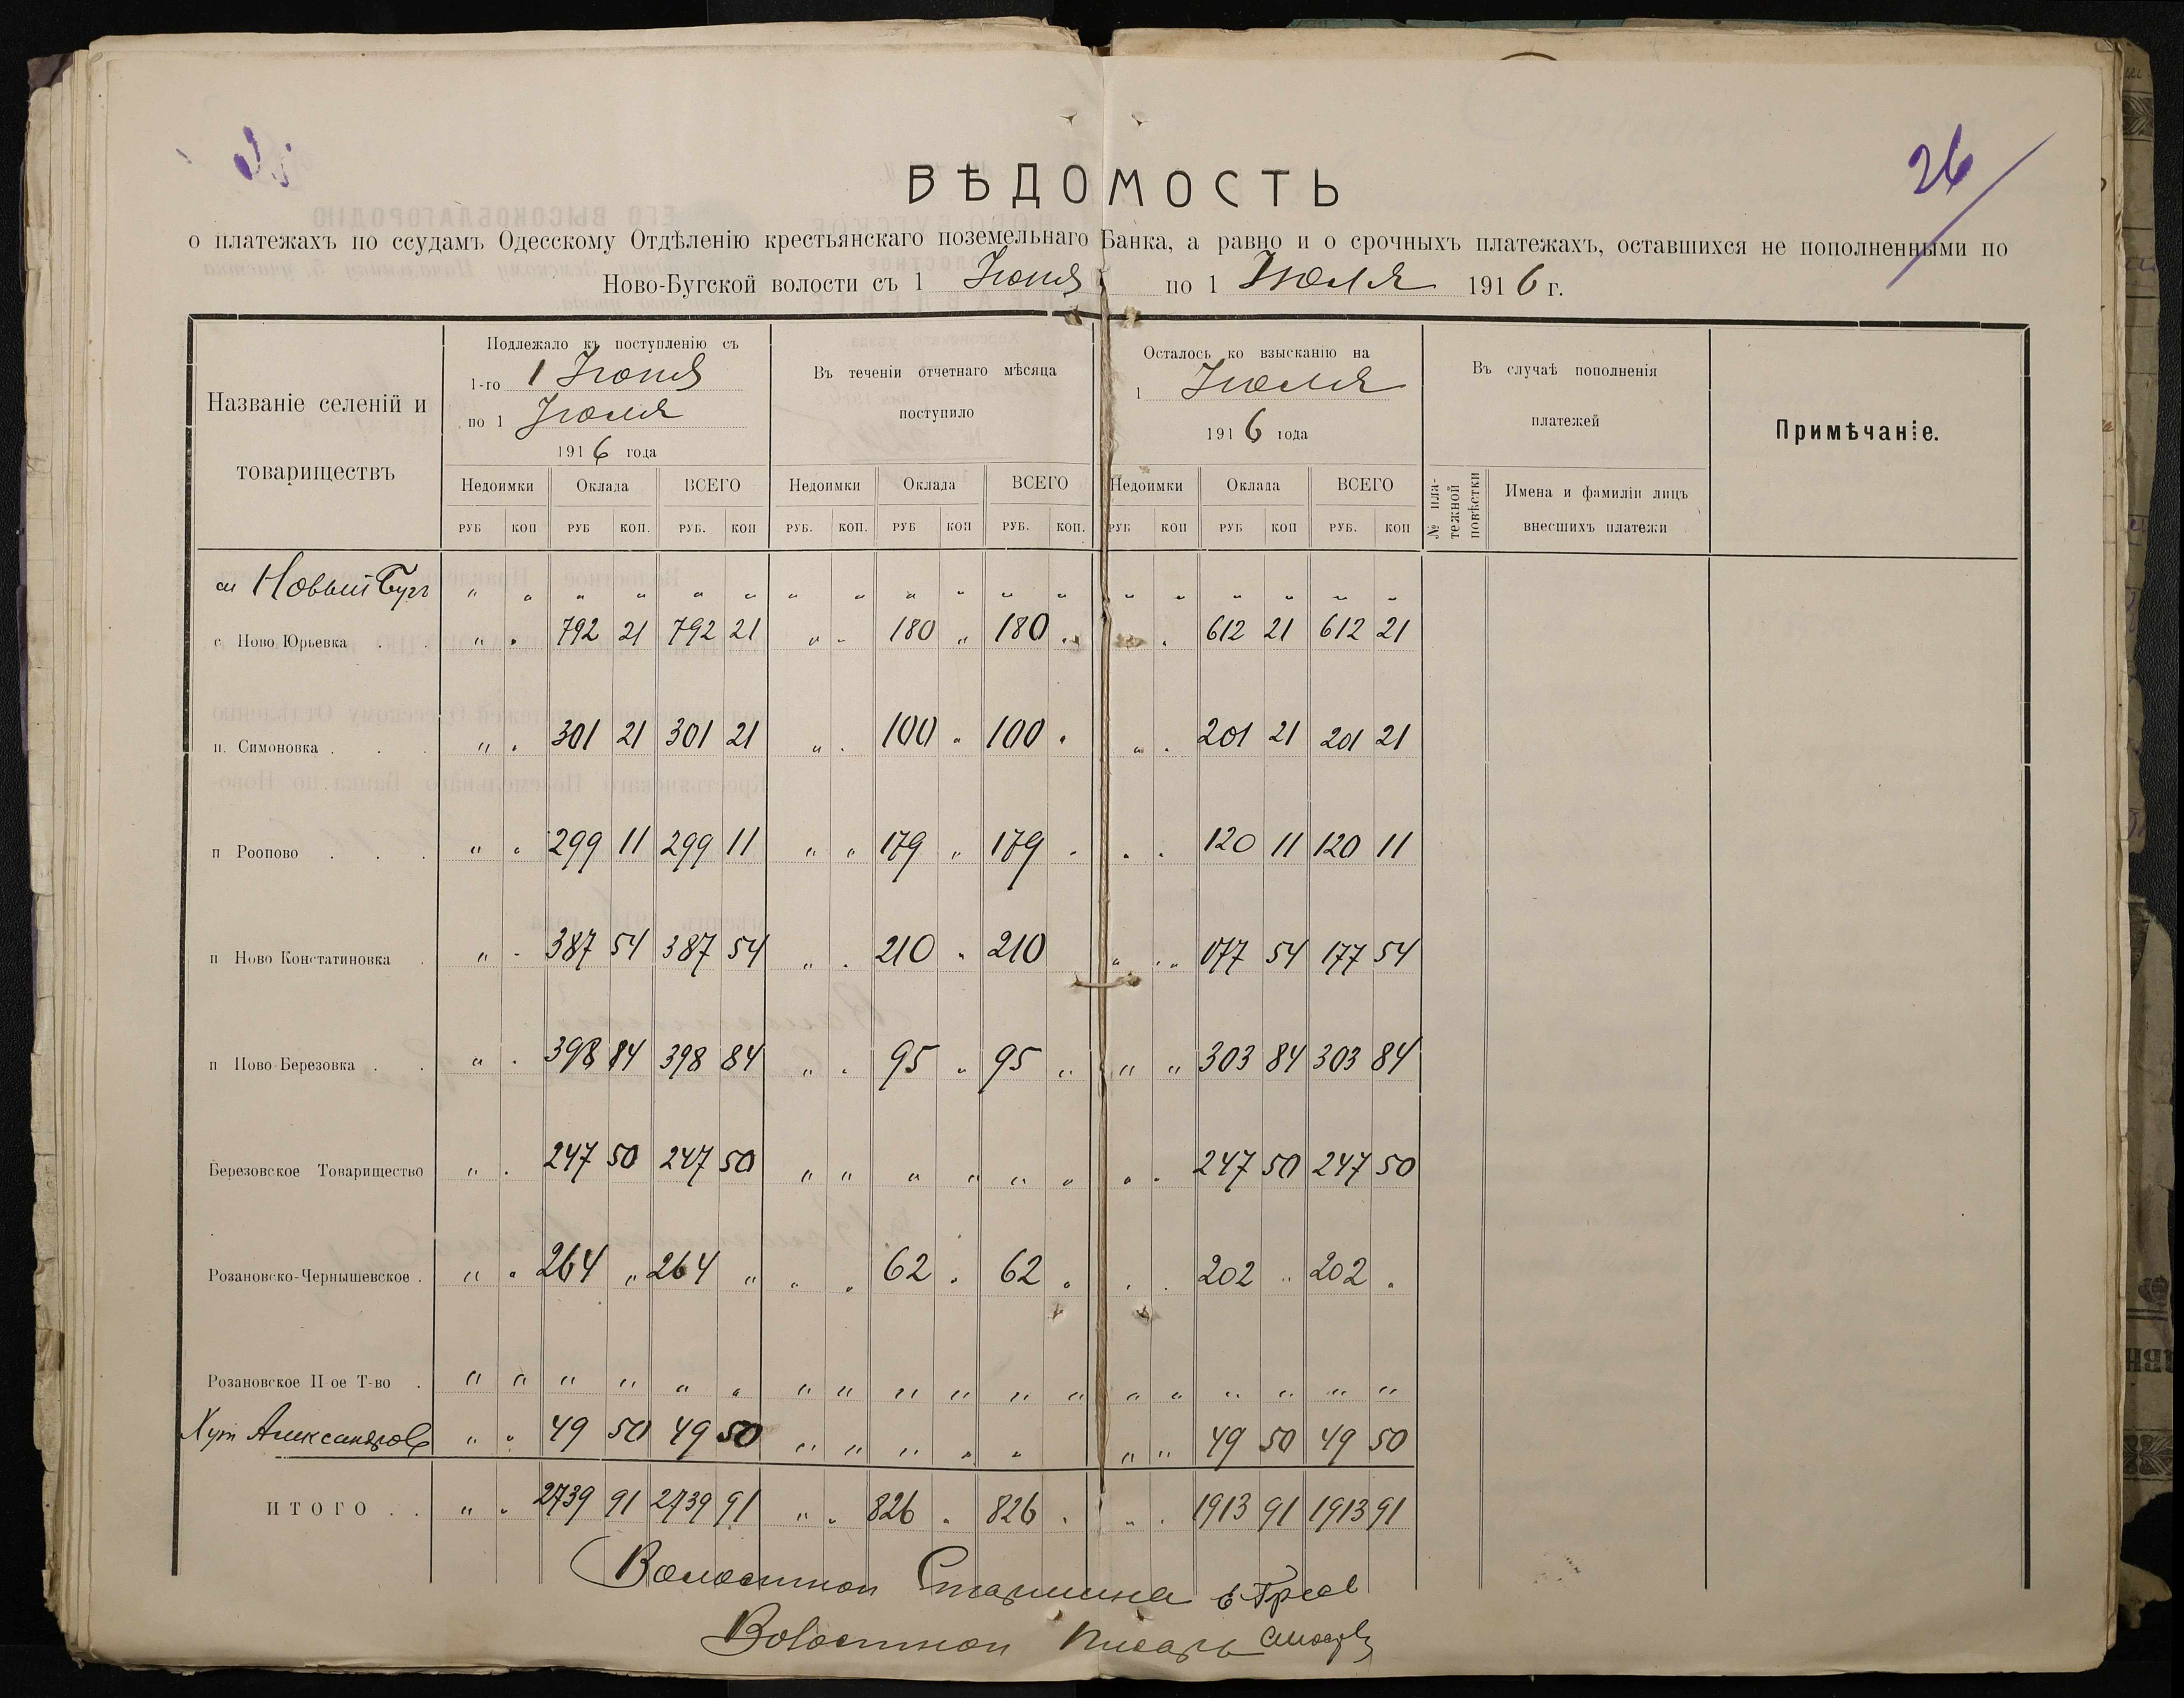 26
ВѢДОМОСТЬ
о платежахъ по ссудамъ Одесскому Отдѣленію крестьянскаго поземельнаго Банка, а равно и о срочныхъ платежахъ, оставшихся не пополненными по
Ново-Бугской волости съ 1 Іюня по 1 Іюля 1916 г.
Названіе селеній и товариществъ
Подлежало къ поступленію съ
1-го 1 Іюня
по 1 Іюля
1916 года
Въ теченіи отчетнаго мѣсяца
поступило
Осталось ко взысканію на
1 Іюля
1916 года
Въ случаѣ пополненія
платежей
Примѣчаніе.
Недоимки Оклада ВСЕГО Недоимки Оклада ВСЕГО Недоимки Оклада ВСЕГО
№ пла-
тежной
повѣстки
Имена и фамиліи лицъ
внесшихъ платежи
РУБ КОП РУБ КОП. РУБ. КОП РУБ. КОП. РУБ КОП РУБ. КОП. РУБ КОП РУБ КОП РУБ. КОП
Новый Бугъ " " " " " " " " " " " " " " " " " "
с. Ново Юрьевка . . " " 792 21 792 21 " " 180 " 180 " " " 612 21 612 21
п. Симоновка . . . " " 301 21 301 21 " " 100 " 100 " " " 201 21 201 21
п Роопово . . . " " 299 11 299 11 " " 179 " 179 " " " 120 11 120 11
п Ново Констатиновка . " " 387 54 387 54 " " 210 " 210 " " 177 54 177 54
п Ново-Березовка . . " " 398 84 398 84 " " 95 " 95 " " " 303 84 303 84
Березовское Товарищество " " 247 50 247 50 " " " " " " " " 247 50 247 50
Розановско-Чернышевское . " " 264 " 264 " " " 62 " 62 " " " 202 " 202 "
Розановское II-ое Т-во . " " " " " " " " " " " " " " " " " "
Хут Александров " " 49 50 49 50 " " " " " " " 49 50 49 50
ИТОГО . . " " 2739 91 2739 91 " " 826 " 826 " " " 1913 91 1913 91
Волостной Старшина
Волостной Писарь